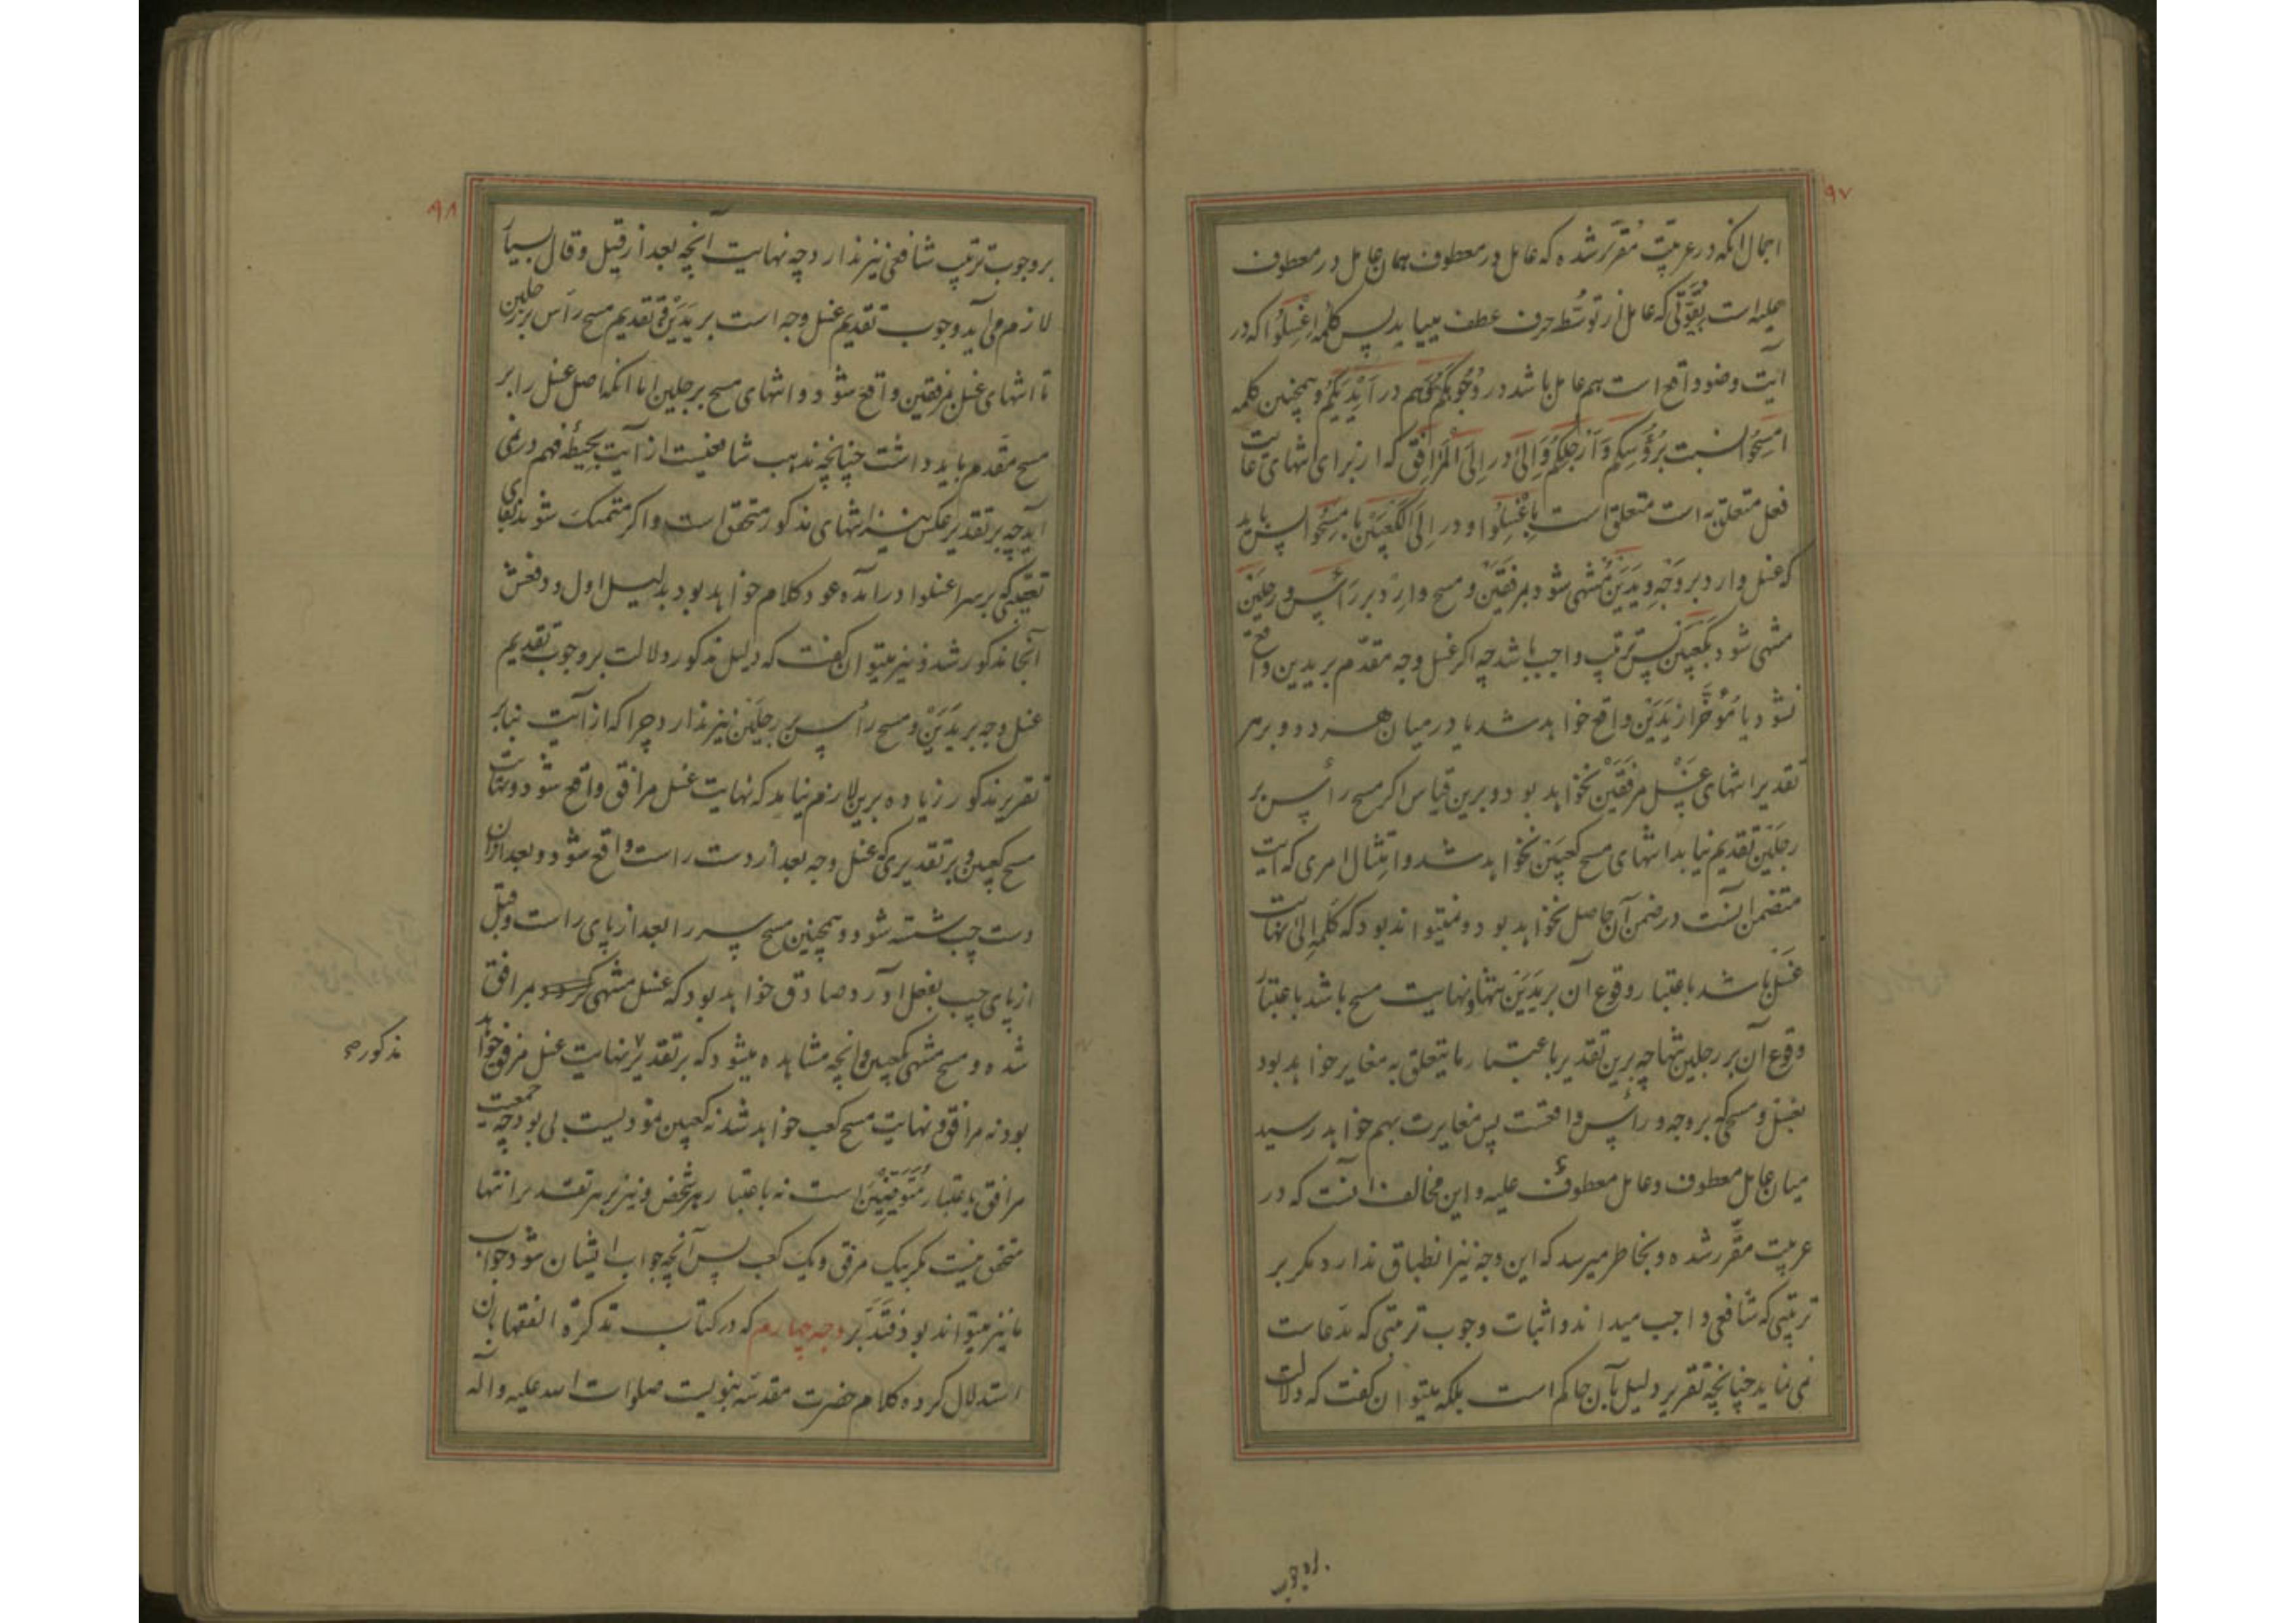 ۹۷
اجمال انکه در عربیّت مُقرّر شده که عامل در معطوف همان عامل در معطوف
علیه است بقُوّتی که عامل از توسُّط حرف عطف مییابد پس کلمه اِغْسِلُوا که در
آیت وضو واقع است هم عامل باشد در وُجُوهَکُم و هم در اَیْدِیَکُم و همچنین کلمه
امسَحُوا نسبت برُؤُسِکُم وَ اَرْجُلِکُم وَ اِلیٰ در اِلَی الْمَرَافِقِ که از برای انتهای غایت
فعل متعلق به است متعلق است باِغْسِلُوا و در اِلَی الکَعْبَیْنِ بامسَحُوا پس باید
که غسل وارد بر وَجْه و یَدَیْن مُنتهی شود بمرفقَیْن و مسح وارِد بر رَأس و رِجلَیْن
منتهی شود بکَعْبَیْن پس ترتیب واجب باشد چه اکر غسل وجه مقدّم بر یدین واقع
نشود یا مُؤخَّر از یَدَیْن واقع خواهد شد یا در میان هر دو و بر هر
تقدیر انتهای غَسْل مرفقَیْن نخواهد بود و برین قیاس اکر مسح رأس بر
رجلَیْن تقدیم نیابد انتهای مسح کعبَیْن نخواهد شد و امتثال امری که آیت
متضمن آنست در ضمن آن حاصل نخواهد بود و نمیتواند بود که کلمه اِلیٰ نهایت
غَسْل باشد باعتبار وقوع آن بر یَدَیْن تنها و نهایت مسح باشد باعتبار
وقوع آن بر رجلین تنها چه برین تقدیر باعتبار ما یتعلق به مغایر خواهد بود
بغسل و مسحی که بر وجه و رأس واقعست پس مغایرت بهم خواهد رسید
میان عامل معطوف و عامل معطوفٌ علیه و این مخالف آنست که در
عربیت مقرّر شده و بخاطر میرسد که این وجه نیز انطباق ندارد مکر بر
ترتیبی که شافعی واجب میداند و اثبات وجوب ترتیبی که مدّعاست
نمی نماید چنانچه تقریر دلیل بآن حاکم است بلکه میتوان کفت که دلالت
بر وجوب
۹۸
بر وجوب ترتیب شافعی نیز ندارد چه نهایت آنچه بعد از قیل و قال بسیار
لازم می آید وجوب تقدیم غسل وجه است بر یدَیْن و تقدیم مسح رأس بر رجلین
تا انتهای غسل بمرفقین واقع شود و انتهای مسح بر رجلین اما انکه اصل غسل را بر
مسح مقدم باید داشت چنانچه مذهب شافعیست از آیت بحیطهٔ فهم در نمی
آید چه بر تقدیر عکس نیز انتهای مذکور متحقق است و اکر متمسک شوند بفای
تعقیبی که بر سر اغسلوا درآمده عود کلام خواهد بود بدلیل اول و دفعش
آنجا مذکور شد و نیز میتوان کفت که دلیل مذکور دلالت بر وجوب تقدیم
غسل وجه بر یَدَیْن و مسح رأس بر رجلَیْن نیز ندارد چرا که از آیت بنابر
تقریر مذکور زیاده برین لازم نیاید که نهایت غسل مرافق واقع شود و نهایت
مسح کعبین و بر تقدیری که غسل وجه بعد از دست راست واقع شود و بعد ازان
دست چپ شسته شود و همچنین مسح سر را بعد از پای راست و قبل
از پای چپ بفعل آورد صادق خواهد بود که غسل منتهی بمرافق
شده و مسح منتهی بکعبین و انچه مشاهده میشود که بر تقدیر نهایت غسل مرفق خواهد
مذکور صح
بود نه مرافق و نهایت مسح کعب خواهد شد نه کعبین مؤدیست بلی بود چه جمعیت
مرافق باعتبار مُتَوَضِّیین است نه باعتبار هر شخص و نیز بر هر تقدیر انتها
متحقق نیست مکر بیک مرفق و یک کعب پس آنچه جواب ایشان شود جواب
ما نیز میتواند بود فَتَدَبَّر وجه چهارم که در کتاب تذکرة الفقها بان
استدلال کرده کلام حضرت مقدسه نبویست صلوات الله علیه و آله